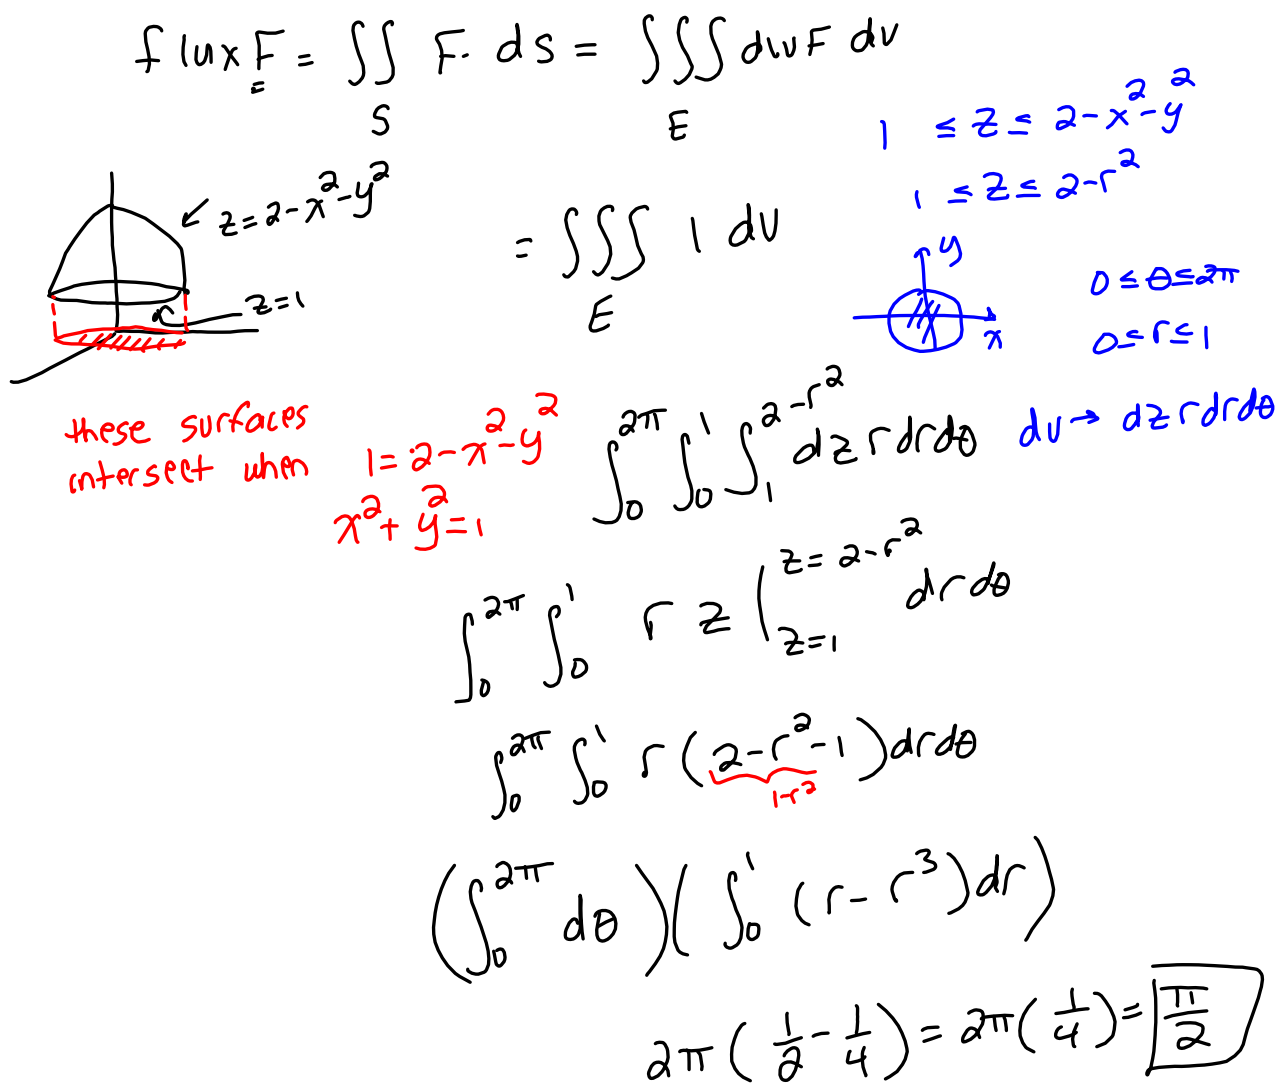 flux F = ∬_S F · dS = ∭_E div F dv
1 ≤ z ≤ 2-x²-y²
1 ≤ z ≤ 2-r²
z=2-x²-y²
= ∭_E 1 dv
z=1
y
x
0 ≤ θ ≤ 2π
0 ≤ r ≤ 1
these surfaces
intersect when 1=2-x²-y²
x²+y²=1
∫_0^{2π} ∫_0^1 ∫_1^{2-r²} dz r dr dθ
dv → dz r dr dθ
∫_0^{2π} ∫_0^1 r z |_{z=1}^{z=2-r²} dr dθ
∫_0^{2π} ∫_0^1 r (2-r²-1) dr dθ
1-r²
(∫_0^{2π} dθ)(∫_0^1 (r-r³) dr)
2π(1/2 - 1/4) = 2π(1/4) = π/2